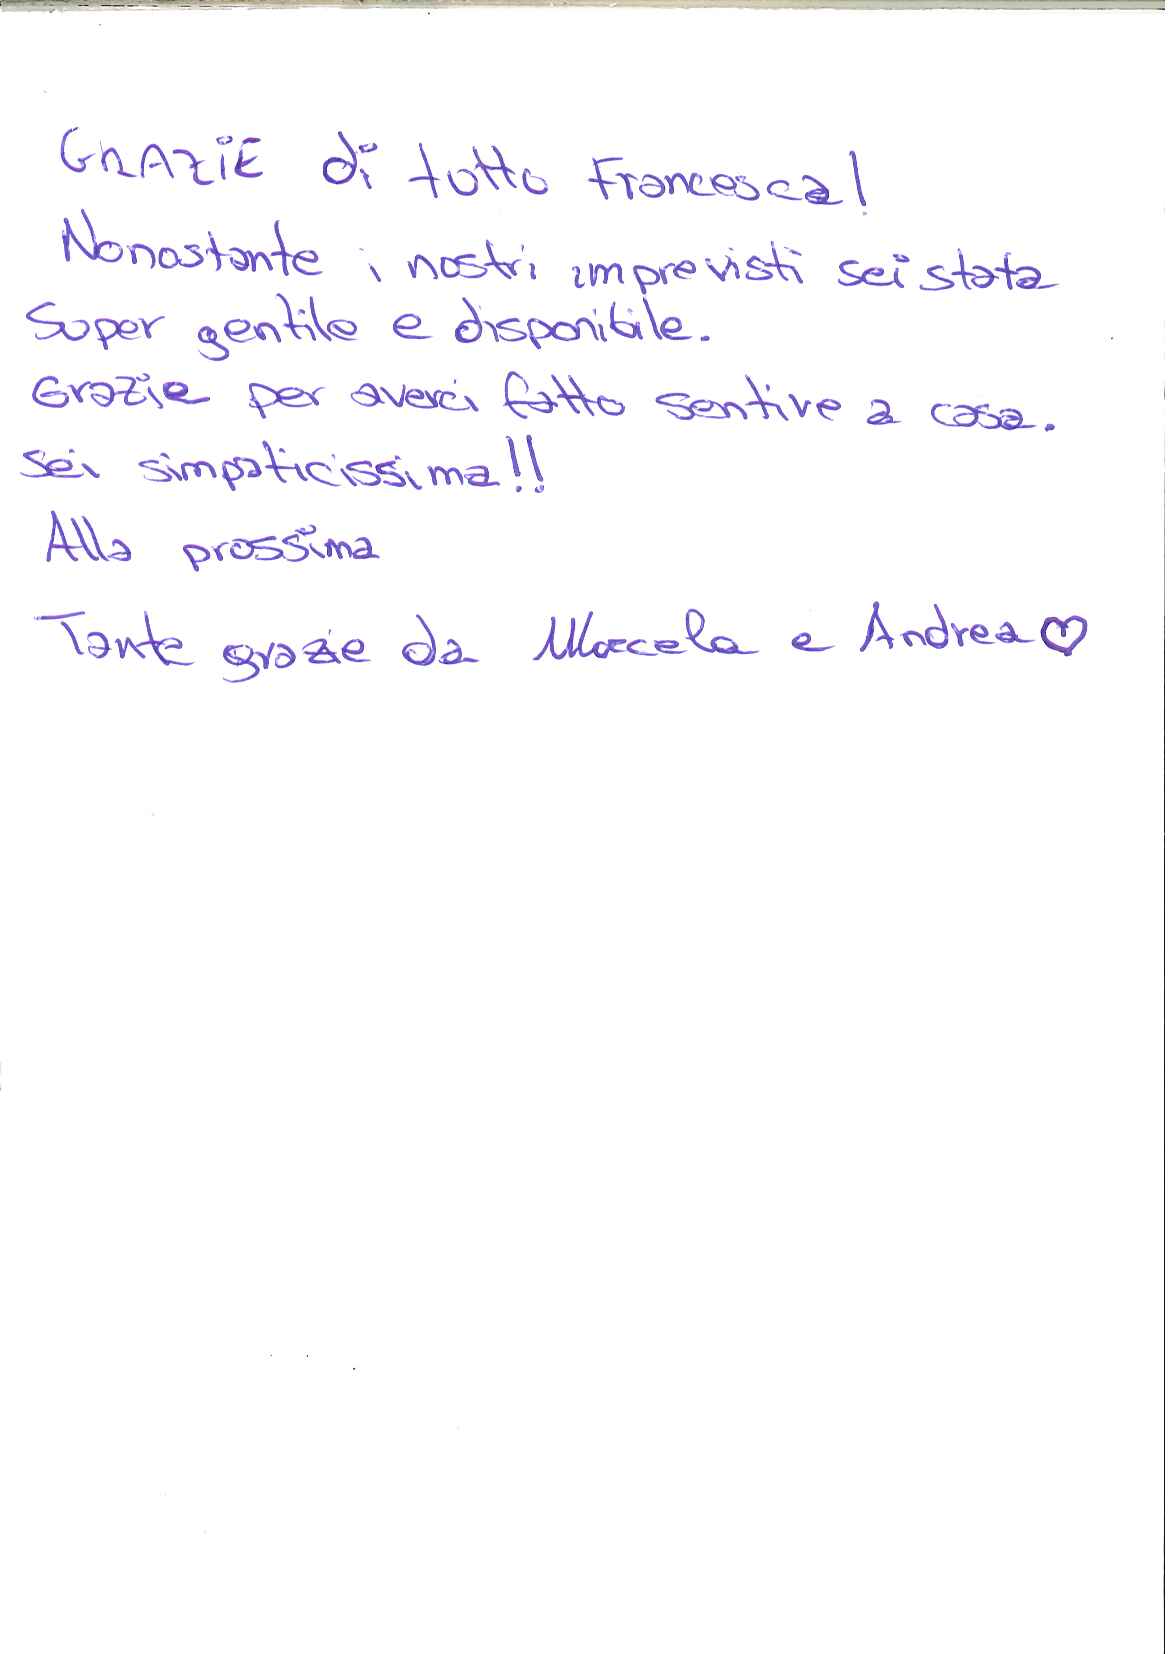 GRAZIE di tutto Francesca!
Nonostante i nostri imprevisti sei stata
Super gentile e disponibile.
Grazie per averci fatto sentire a casa.
Sei simpaticissima!!
Alla prossima
Tante grazie da Marcela e Andrea♡